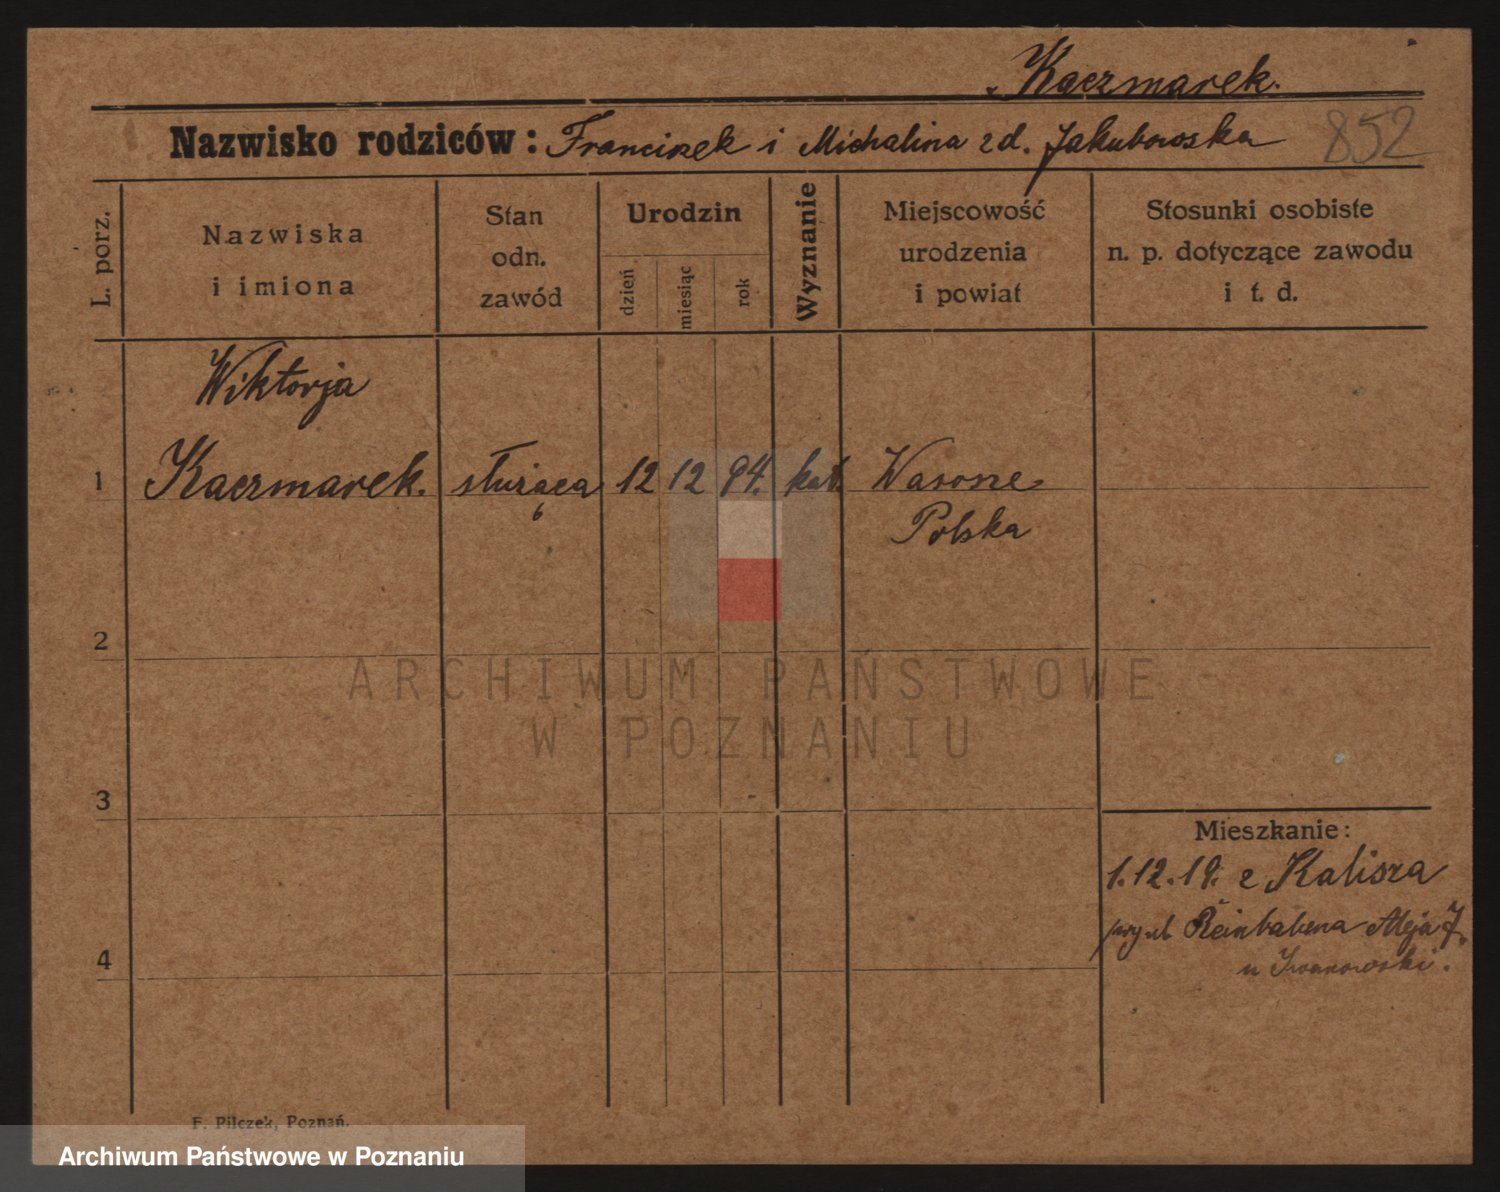 Kaczmarek.
Nazwisko rodziców: Franciszek i Michalina zd. Jakubowska 852
L. porz.
Nazwiska
i imiona
Stan
odn.
zawód
Urodzin
dzień
miesiąc
rok
Wyznanie
Miejscowość
urodzenia
i powiat
Stosunki osobiste
n. p. dotyczące zawodu
i t. d.
Wiktorja
1 Kaczmarek. służąca 12 12 94. kat.
Polska
2
3
4
Mieszkanie:
1.12.19. z Kalisza
Reinbabena Aleja 7.
u Iwanowski.
F. Pilczek, Poznań.
ARCHIWUM PAŃSTWOWE
W POZNANIU
Archiwum Państwowe w Poznaniu